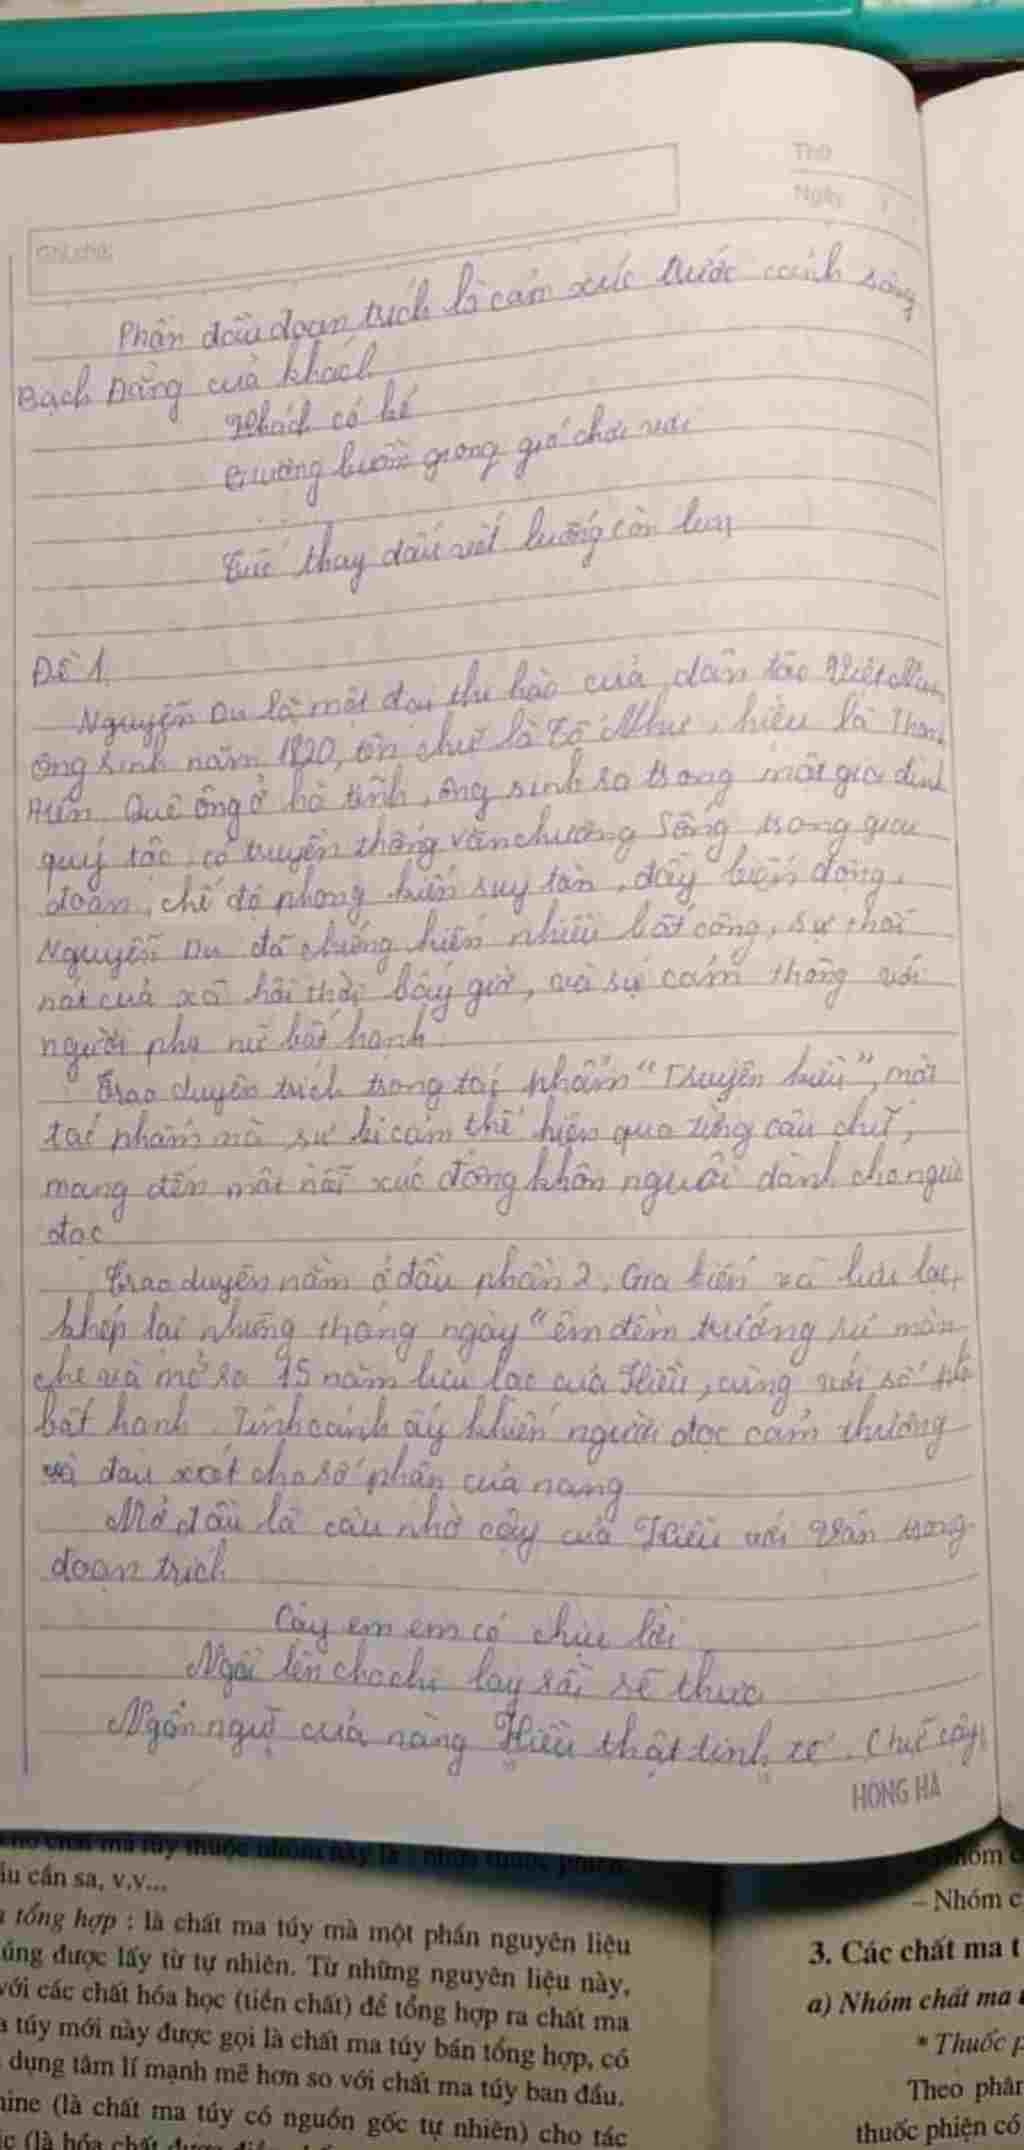 Thứ
Ngày
Ghi chú:
Phần đầu đoạn trích là cảm xúc trước cảnh sông
Bạch Đằng của khách
Khách có kẻ
Giương buồm giong gió chơi vơi
Tiếc thay dấu vết luống còn lưu
Đề 1.
Nguyễn Du là một đại thi hào của dân tộc Việt Nam,
ông sinh năm 1820, tên chữ là Tố Như, hiệu là Thanh
Hiên. Quê ông ở hà tĩnh, ông sinh ra trong một gia đình
quý tộc, có truyền thống văn chương Sống trong giai
đoạn, chế độ phong kiến suy tàn, đầy biến động,
Nguyễn Du đã chứng kiến nhiều bất công, sự thối
nát của xã hội thời bấy giờ, và sự cảm thông với
người phụ nữ bất hạnh.
Trao duyên trích trong tác phẩm "Truyện kiều", một
tác phẩm mà sự bi cảm thể hiện qua từng câu chữ,
mang đến một nỗi xúc động khôn nguôi dành cho người
đọc
Trao duyên nằm ở đầu phần 2, Gia biến và lưu lạc,
khép lại những tháng ngày "êm đềm trướng rủ màn
che và mở ra 15 năm lưu lạc của Kiều, cùng với số
bất hạnh. Tình cảnh ấy khiến người đọc cảm thương
và đau xót cho số phận của nàng
Mở đầu là câu nhờ cậy của Kiều với Vân trong
đoạn trích
Cậy em em có chịu lời
Ngồi lên cho chị lạy rồi sẽ thưa
Ngôn ngữ của nàng Kiều thật tinh tế. Chữ cậy
HỒNG HÀ
ầu cần sa, v.v...
tổng hợp : là chất ma túy mà một phần nguyên liệu
úng được lấy từ tự nhiên. Từ những nguyên liệu này,
với các chất hóa học (tiền chất) để tổng hợp ra chất ma
túy mới này được gọi là chất ma túy bán tổng hợp, có
dụng tâm lí mạnh mẽ hơn so với chất ma túy ban đầu.
ine (là chất ma túy có nguồn gốc tự nhiên) cho tác
– Nhóm c
3. Các chất ma t
a) Nhóm chất ma
* Thuốc p
Theo phân
thuốc phiện có